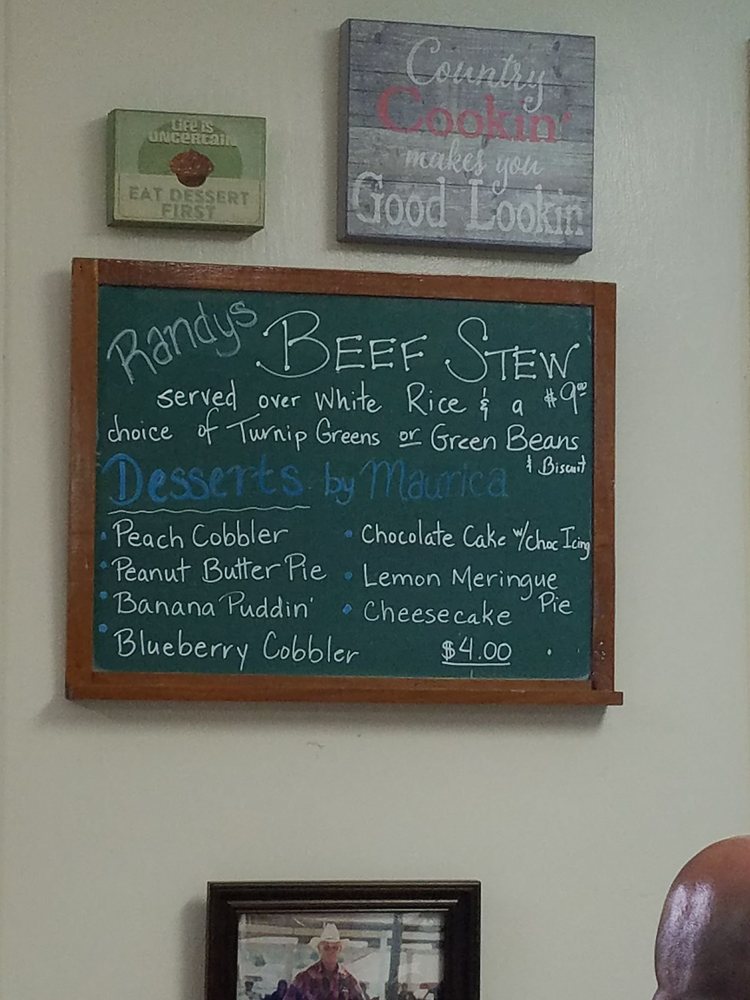 Country
Cookin'
makes you
Good Lookin
Life is
Uncertain
EAT DESSERT
FIRST
Randys BEEF STEW
served over White Rice & a $9.00
choice of Turnip Greens or Green Beans
& Biscuit
Desserts by Maurica
• Peach Cobbler
• Peanut Butter Pie
• Banana Puddin'
• Blueberry Cobbler
• Chocolate Cake w/choc Icing
• Lemon Meringue
Pie
• Cheesecake
$4.00